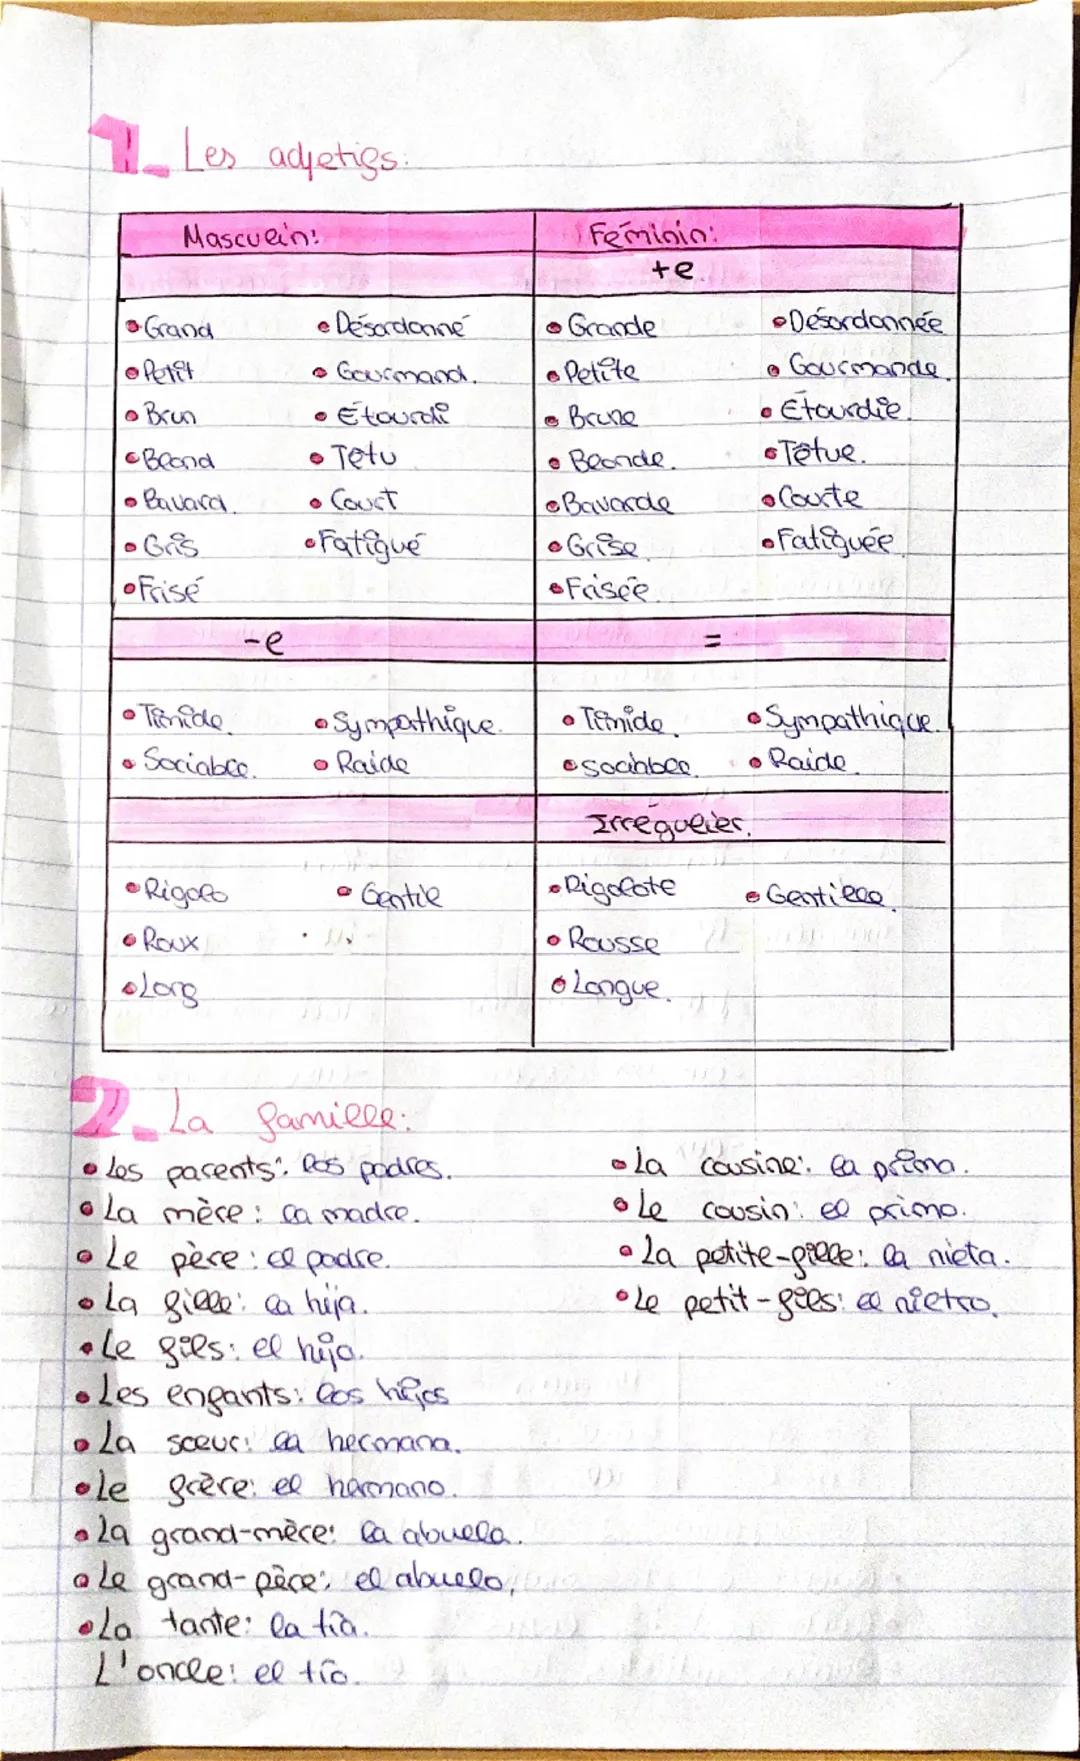 1_ Les adjetifs:
Masculin: Féminin:
+e
• Grand • Désordonné • Grande • Désordonnée
• Petit • Gourmand. • Petite • Gourmande.
• Brun • Étourdi • Brune • Étourdie.
• Blond • Tetu • Blonde. • Tetue.
• Bavard. • Court • Bavarde • Courte
• Gris • Fatigué • Grise • Fatiguée
• Frisé • Frisée
-e =
• Timide. • Sympathique. • Timide. • Sympathique.
• Sociable. • Raide • socibble. • Raide.
Irrégulier.
• Rigolo • Gentil • Rigolote • Gentille.
• Roux • Rousse
• Long • Longue.
2_ La famille:
• Les parents: los padres. • La cousine: la prima.
• La mère: la madre. • Le cousin: el primo.
• Le père: el padre. • La petite-fille: la nieta.
• La fille: la hija. • Le petit-fils: el nietro.
• Le fils: el hijo.
• Les enfants: los hijos
• La soeur: la hermana.
• Le frère: el hermano.
• La grand-mère: la abuela.
• Le grand-père: el abuelo.
• La tante: la tía.
L'oncle: el tío.